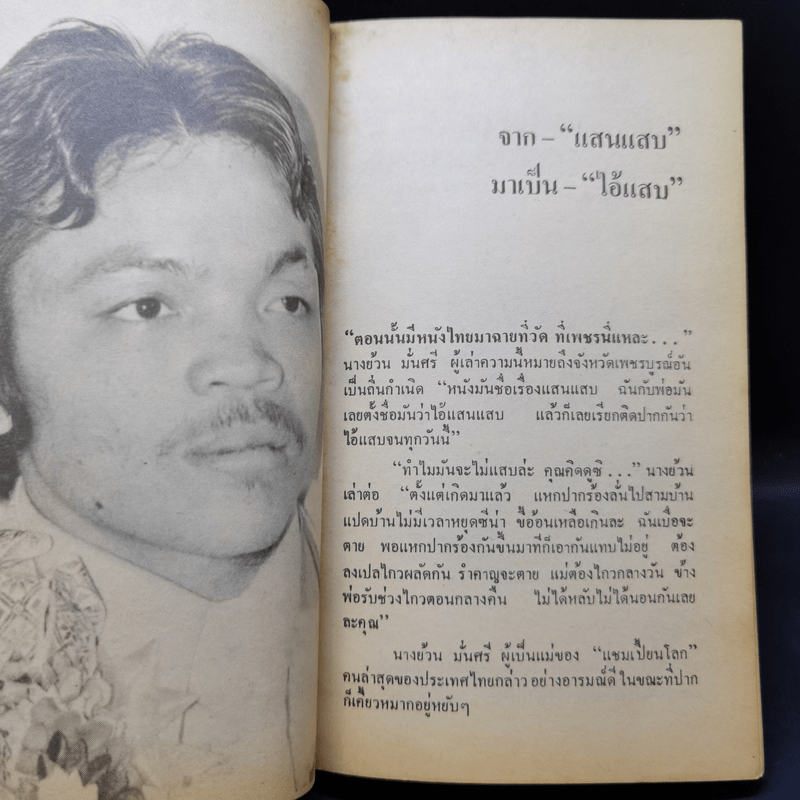 จาก – “แสนแสบ”
มาเป็น – “ไอ้แสบ”
“ตอนนั้นมีหนังไทยมาฉายที่วัด ที่เพชรนี่แหละ...”
นางย้วน มั่นศรี ผู้เล่าความนี้หมายถึงจังหวัดเพชรบูรณ์อัน
เป็นถิ่นกำเนิด “หนังมันชื่อเรื่องแสนแสบ ฉันกับพ่อมัน
เลยตั้งชื่อมันว่าไอ้แสนแสบ แล้วก็เลยเรียกติดปากกันว่า
ไอ้แสบจนทุกวันนี้”
“ทำไมมันจะไม่แสบล่ะ คุณคิดดูซิ...” นางย้วน
เล่าต่อ “ตั้งแต่เกิดมาแล้ว แหกปากร้องลั่นไปสามบ้าน
แปดบ้านไม่มีเวลาหยุดซีน่า ขี้อ้อนเหลือเกินละ ฉันเบื่อจะ
ตาย พอแหกปากร้องกันขึ้นมาทีก็เอากันแทบไม่อยู่ ต้อง
ลงเปลไกวผลัดกัน รำคาญจะตาย แม่ต้องไกวกลางวัน ข้าง
พ่อรับช่วงไกวตอนกลางคืน ไม่ได้หลับไม่ได้นอนกันเลย
ละคุณ”
นางย้วน มั่นศรี ผู้เป็นแม่ของ “แชมเปี้ยนโลก”
คนล่าสุดของประเทศไทยกล่าว อย่างอารมณ์ดี ในขณะที่ปาก
ก็เคี้ยวหมากอยู่หยับๆ